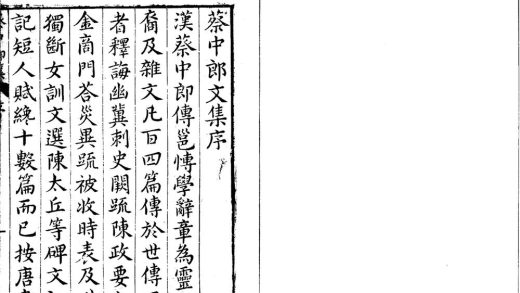 蔡中郎文集序
漢蔡中郎傳邕博學辭章為靈
裔及雜文凡百四篇傳於世傳
者釋誨幽冀刺史闕疏陳政要
金商門荅災異疏被收時表及
獨斷女訓文選陳太丘等碑文
記短人賦纔十數篇而已按唐